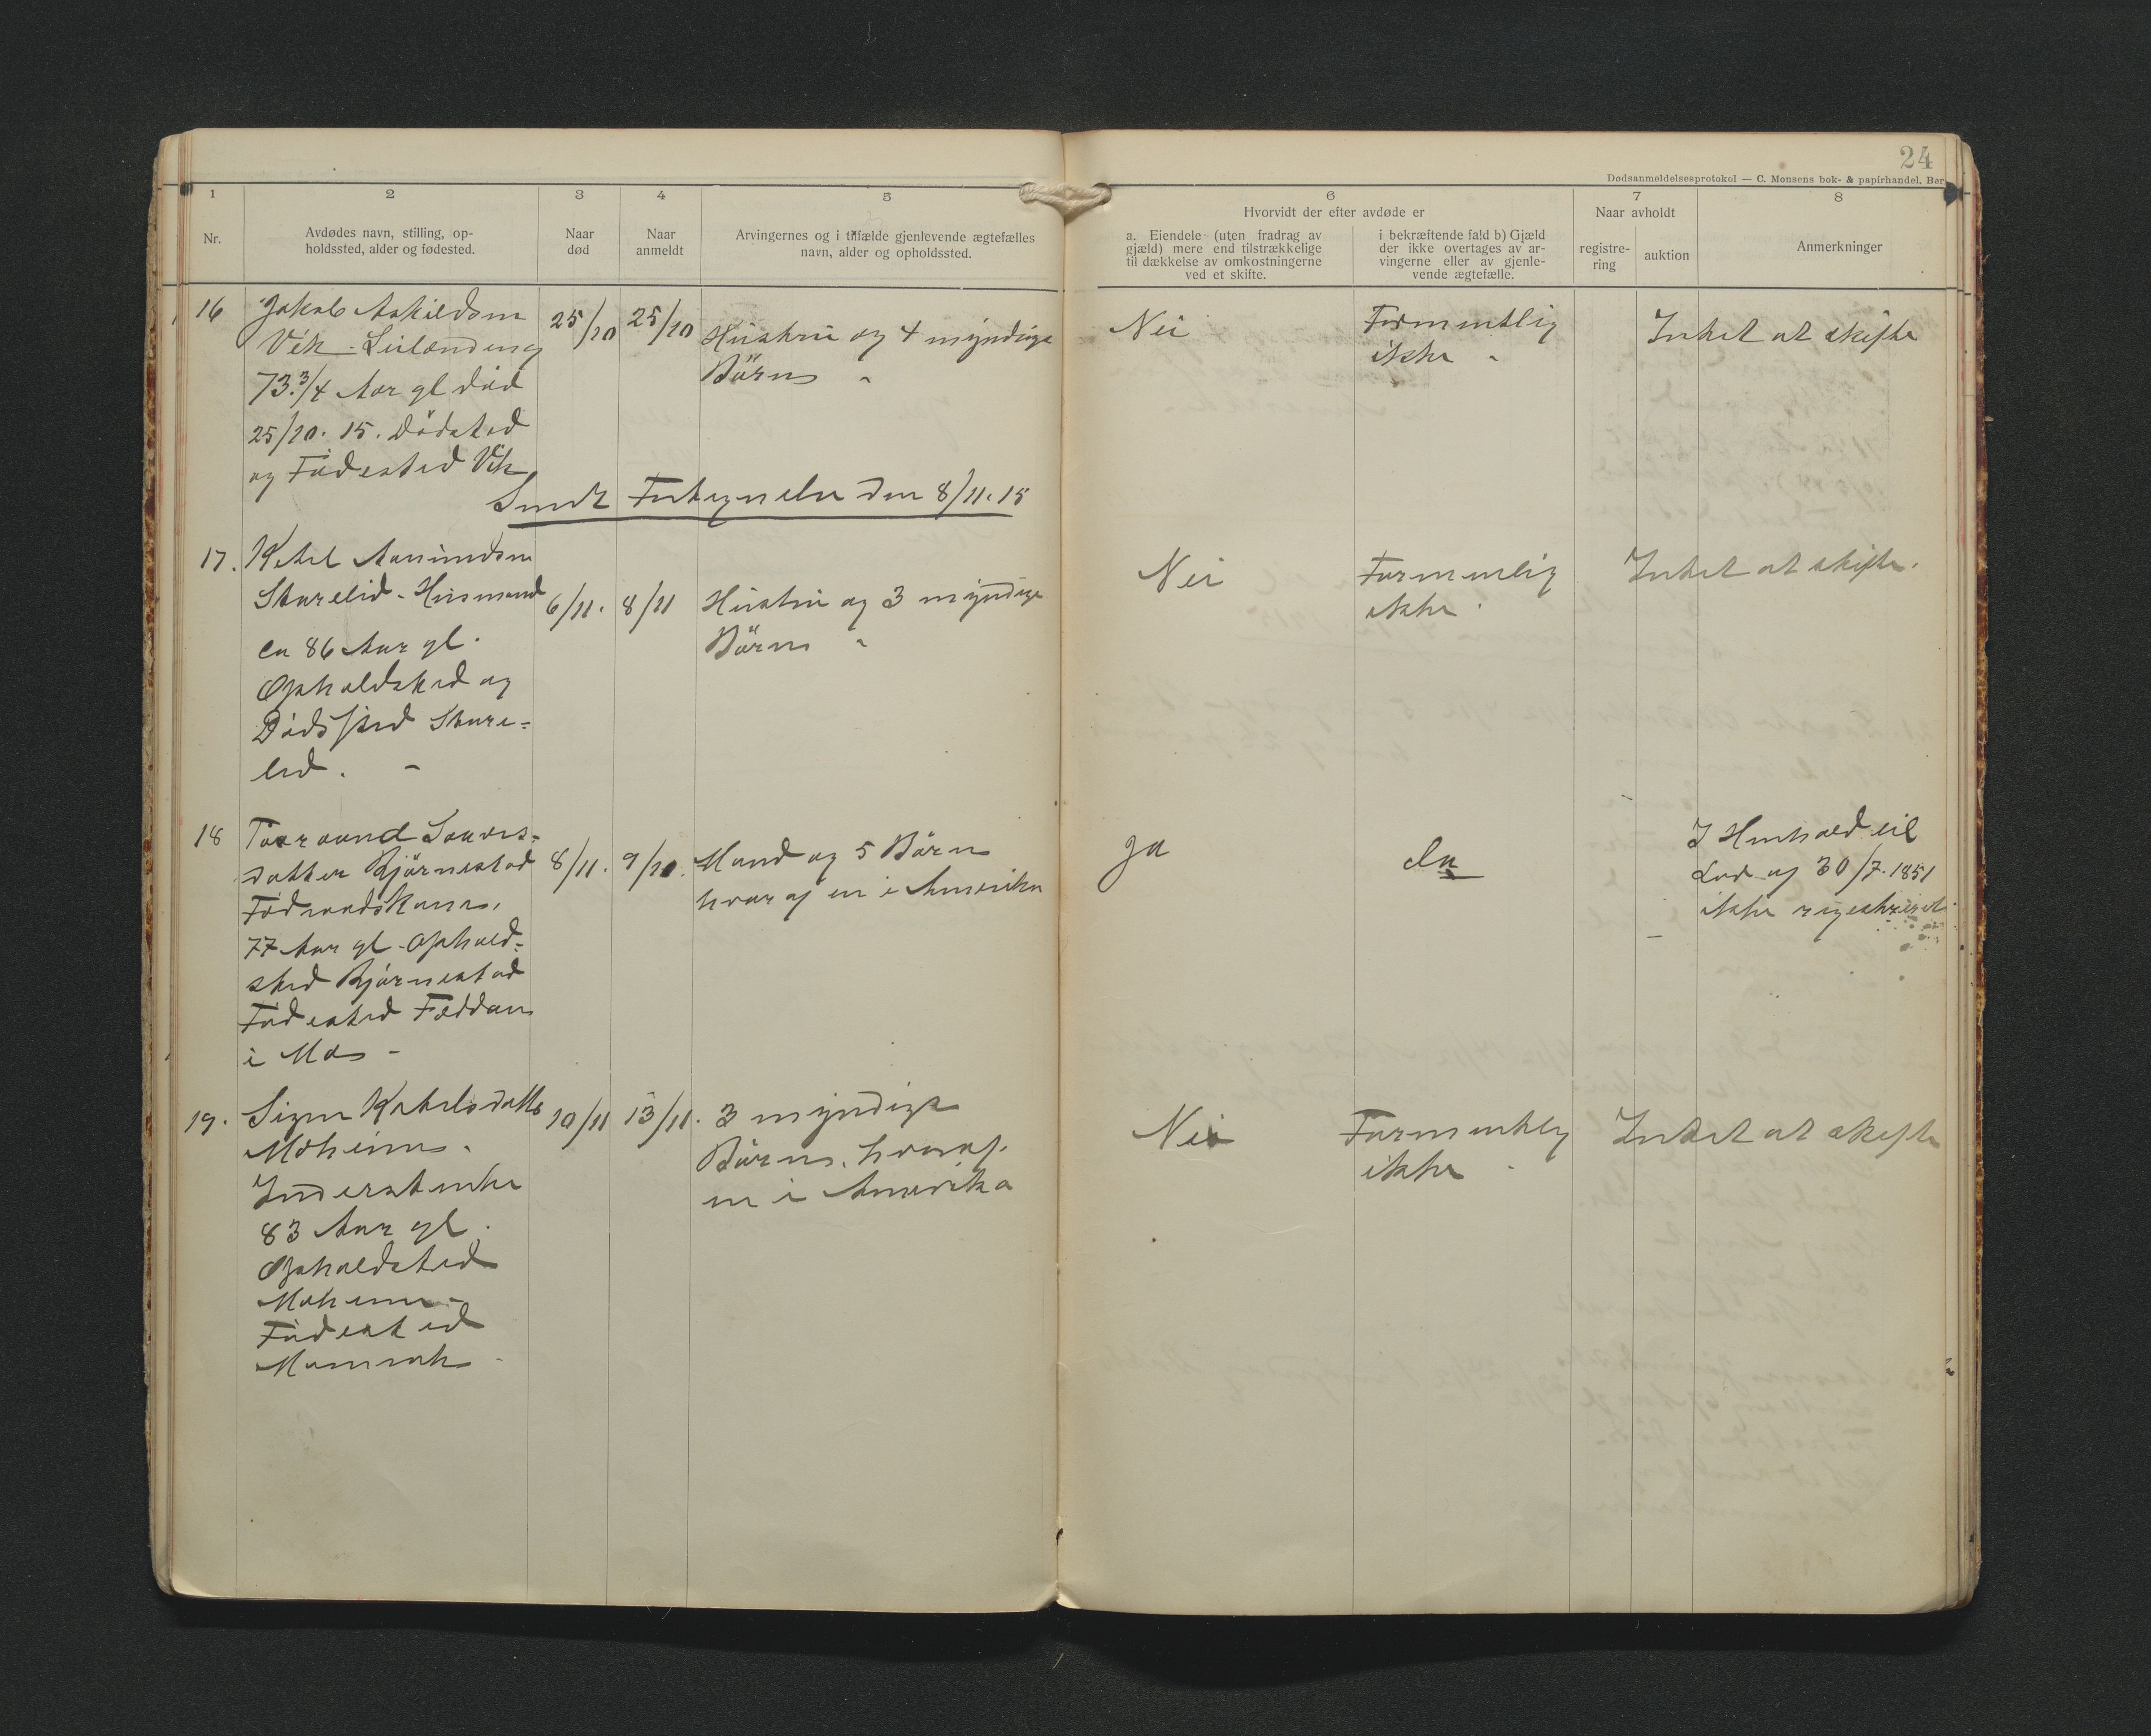 24
Dødsanmeldelsesprotokol — C. Monsens bok- & papirhandel, Ber
1 2 3 4 5 6 7 8
Nr.
Avdødes navn, stilling, op-
holdssted, alder og fødested.
Naar
død
Naar
anmeldt
Arvingernes og i tilfælde gjenlevende ægtefælles
navn, alder og opholdssted.
Hvorvidt der efter avdøde er
a. Eiendele (uten fradrag av
gjæld) mere end tilstrækkelige
til dækkelse av omkostningerne
ved et skifte.
i bekræftende fald b) Gjæld
der ikke overtages av ar-
vingerne eller av gjenle-
vende ægtefælle.
Naar avholdt
registre-
ring
auktion
Anmerkninger
16
Jakob Askildsen
Vik - Leilænding
73 3/4 Aar gl død
25/10. 15. Dödsted
og Födested Vik
25/10
25/10
Hustru og 4 myndige
Börn
Nei
Formentlig
ikke
Intet at skifte
Sendt Fortegnelse den 8/11.15
17.
Ketel Aamundsen
Skarelid - Husmand
ca 86 Aar gl.
Opholdsted og
Dödssted Skare-
lid.
6/11.
8/11
Hustru og 3 myndige
Börn
Nei
Formentlig
ikke
Intet at skifte.
18
datter Björnestad
Föderaadskone,
77 Aar gl - Ophold-
sted Björnestad
Födested
i Mo -
8/11.
9/10.
Mand og 5 Börn
hvoraf en i Amerika
Ja
I Henhold til
Lov af 30/7. 1851
ikke registreret
19.
Signe Ketelsdatter
Moheim.
Inderstenke
83 Aar gl.
Opholdsted
Moheim -
Födested
10/11
13/11.
3 myndige
Börn, hvoraf
en i Amerika
Nei
Formentlig
ikke
Intet at skifte